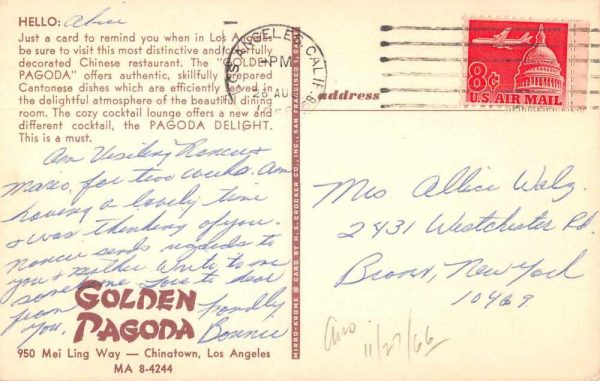 HELLO: Alice
Just a card to remind you when in Los Angeles
be sure to visit this most distinctive and colorfully
decorated Chinese restaurant. The "GOLDEN
PAGODA" offers authentic, skillfully prepared
Cantonese dishes which are efficiently served in
the delightful atmosphere of the beautiful dining
room. The cozy cocktail lounge offers a new and
different cocktail, the PAGODA DELIGHT.
This is a must.
Am Visiting Noreen &
Mario, for two weeks. Am
having a lovely time
& was thinking of you.
Noreen sends regards to
you & mother. Write to me
sometime. Love to hear
from
you,
Fondly
Bonnie
GOLDEN
PAGODA
950 Mei Ling Way — Chinatown, Los Angeles
MA 8-4244
MIRRO-KROME ® CARD BY H. S. CROCKER CO., INC., SAN FRANCISCO 1, CALIF.
address
LOS ANGELES, CALIF.
PM
26 AU
8¢
U.S. AIR MAIL
Mrs. Allice Walz
2431 Westchester Rd.
Bronx, New York
10469
Ans.
11/27/66